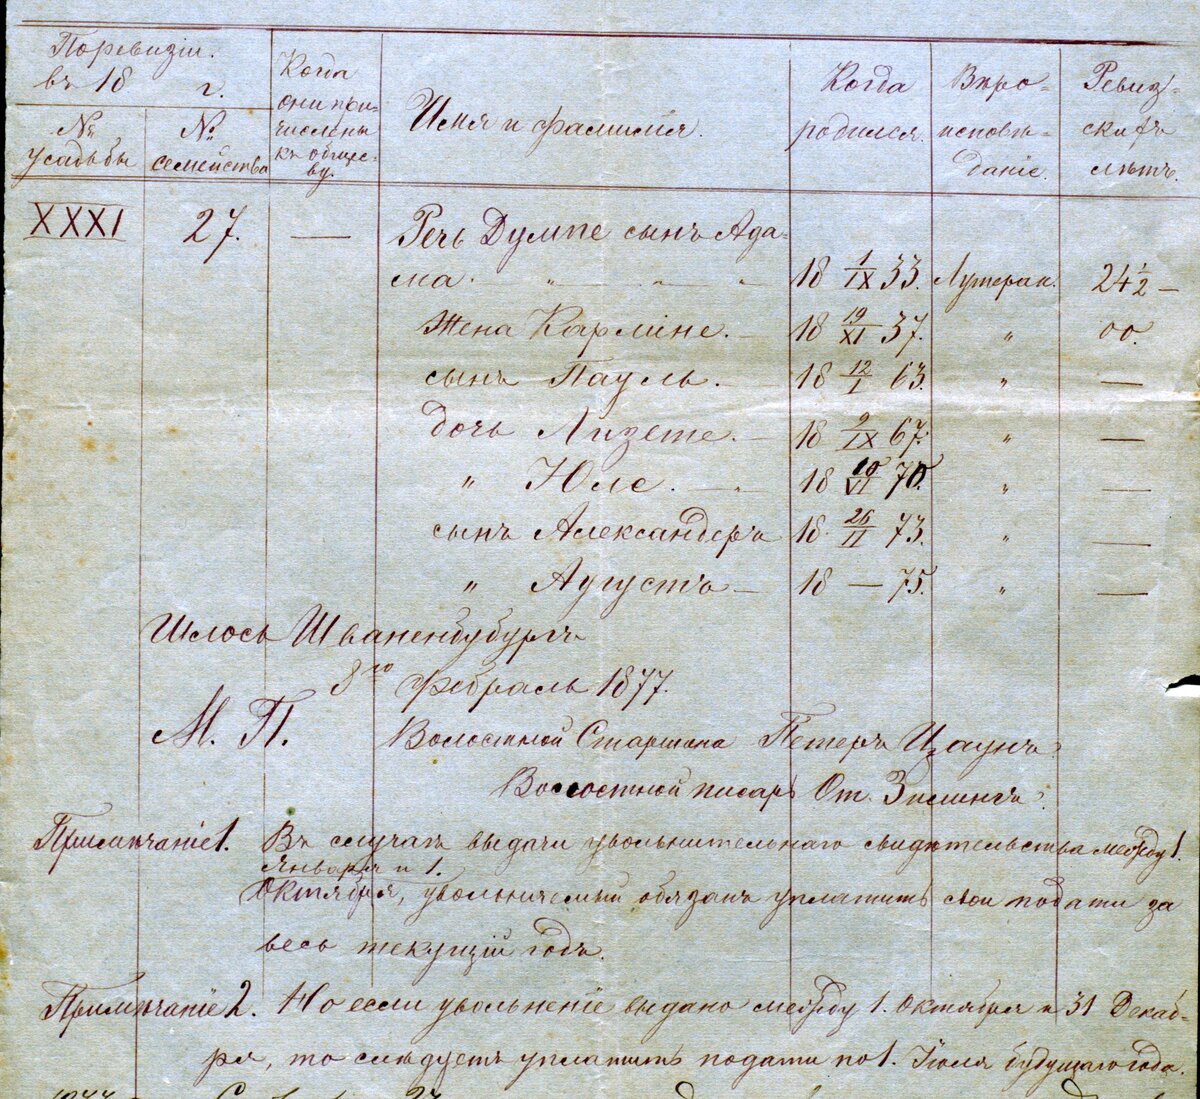 По ревизіи.
въ 18 г.
№
усадьбы
№
семейства
Когда
они при-
числены
къ общес-
ву.
Имя и фамилія.
Когда
родился.
Вѣро-
исповѣ-
даніе.
Ревиз-
скихъ
лѣтъ.
XXXI 27. — Печь Думпе сынъ Ада-
ма. — „ — „ — „ 18 1/IX 33. Лутеран. 24 1/2 —
Жена Карлине. — 18 19/XI 37. „ 00.
сынъ Пауль. 18 12/I 63. „ —
дочь Лизете. — 18 9/IX 67. „ —
„ Юле. — „ 18 10/VI 70. „ —
сынъ Александеръ 18 26/II 73. „ —
„ Аугустъ — 18 — 75. „ —
Шлосъ Шваненбубургъ
8го Февраль 1877.
М. П. Волостной Старшина Петеръ Цаунъ.
Волостной писарь От. Зилингъ.
Примѣчаніе 1. Въ случаѣ выдачи увольнительнаго свидѣтельства между 1.
Января и 1.
Октября, увольняемый обязанъ уплатить свои подати за
весь текущій годъ.
Примѣчаніе 2. Но если увольненіе выдано между 1. Октября и 31 Декаб-
ря, то слѣдуетъ уплатить подати по 1. Іюля будущаго года.